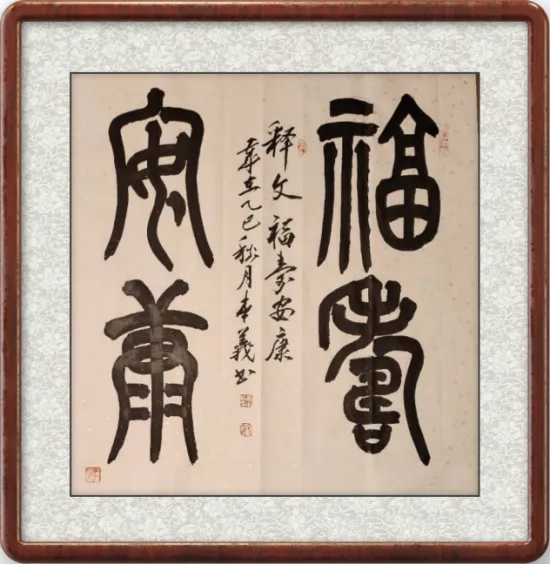 福壽
安康
释文福寿安康
岁在乙巳秋月本義书